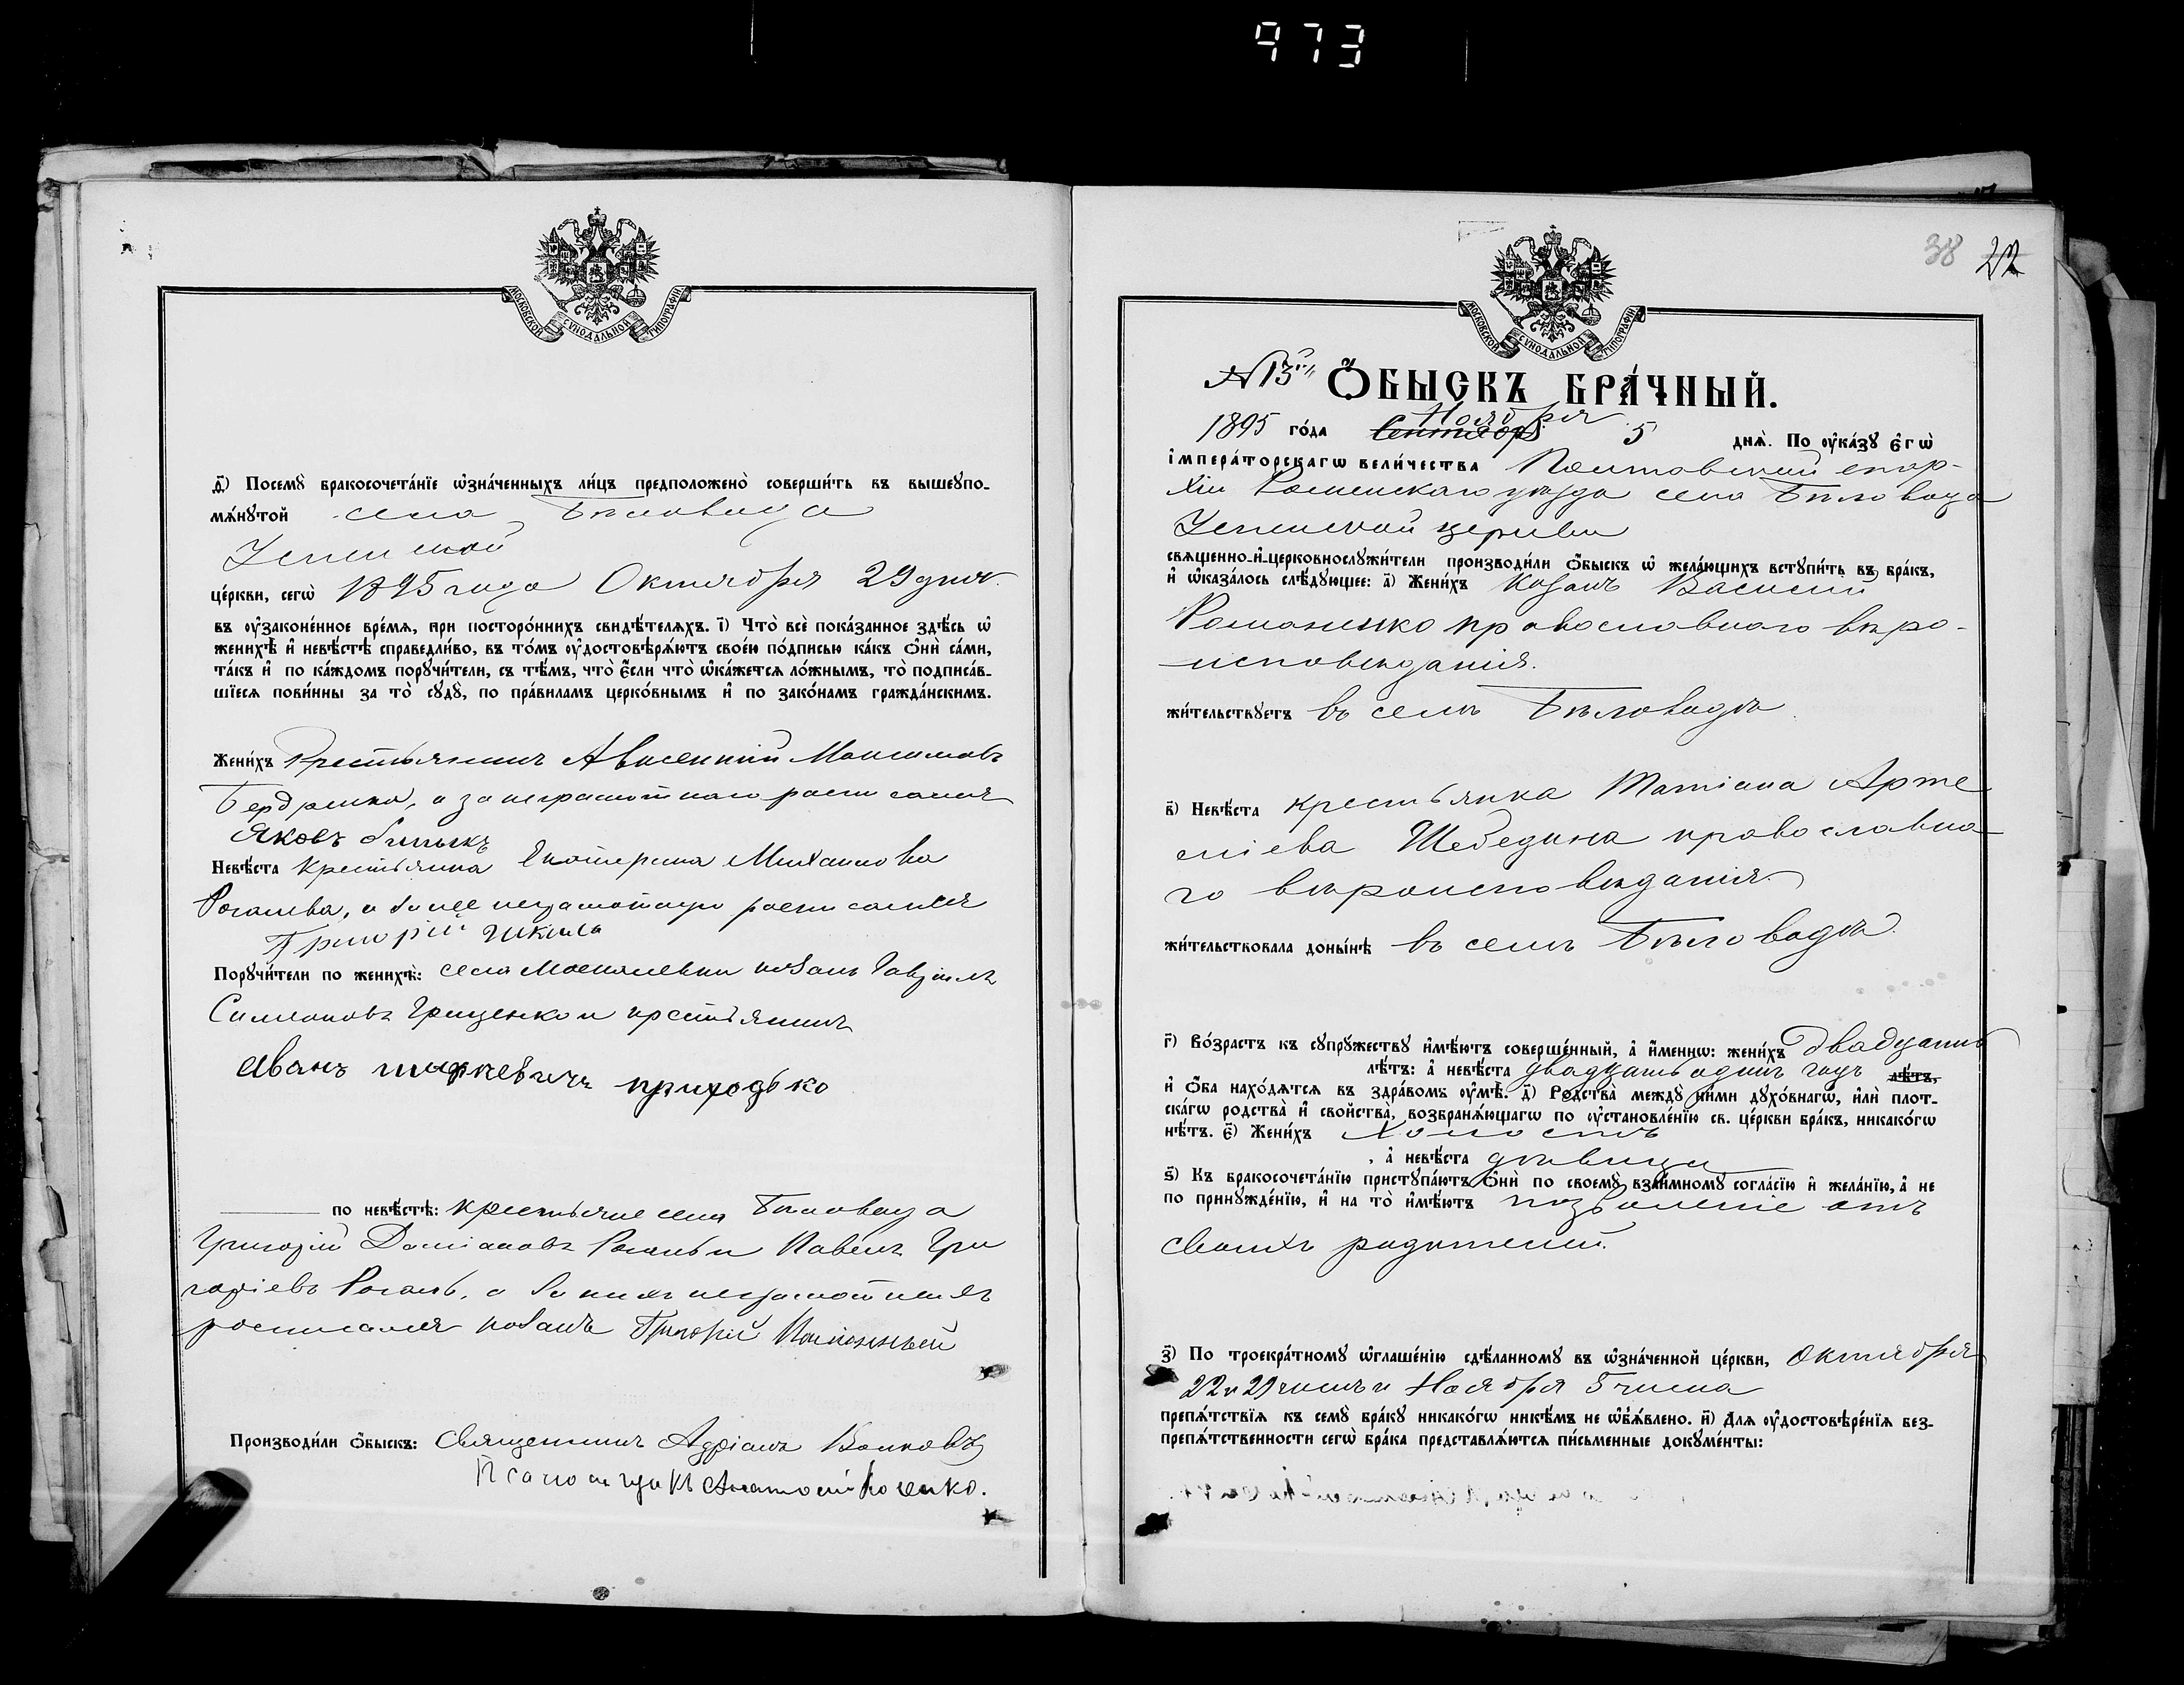 973
МОСКОВСКОЙ СѴНОДАЛЬНОЙ ТИПОГРАФІИ
ѳ҃) Посемꙋ̀ бракосочета́нїе ѡ҆зна́ченныхъ ли́цъ предположено̀ соверши́ть въ вышеꙋпо-
мѧ́нꙋтой села Бѣловода
Успенской
це́ркви, сегѡ̀ 1895 года Октября 29 дня
въ ᲂу҆зако́ненное вре́мѧ, при посторо́ннихъ свидѣ́телѧхъ. і҃) Что̀ всѐ пока́занное здѣ́сь ѡ҆
женихѣ̀ и҆ невѣ́стѣ справедли́во, въ то́мъ ᲂу҆достовѣрѧ́ютъ свое́ю по́дписью ка́къ ѻ҆нѝ са́ми,
та́къ и҆ по ка́ждомъ порꙋчи́тели, съ тѣ́мъ, что̀ є҆́сли что̀ ѡ҆ка́жетсѧ ло́жнымъ, то̀ подписа́в-
шїесѧ пови́нны за то̀ сꙋдꙋ̀, по пра́виламъ церко́внымъ и҆ по зако́намъ гражда́нскимъ.
Жени́хъ Крестьянинъ Авксентий Максимовъ
а за неграмотнаго росписался
Яковъ
Невѣ́ста крестьянка Екатерина Михаилова
Рогалева, а за нее неграмотную росписался
Григорій Шкиль
Порꙋчи́тели по женихѣ̀: села козакъ Гавріилъ
Симеоновъ Грищенко и крестьянинъ
Иванъ приходько
по невѣ́стѣ: крестьяне села Бѣловода
Григорій Даміановъ Рогаль и Павелъ Гри
горіевъ Рогаль, а за нихъ неграмотныхъ
росписался козакъ Григорій
Производи́ли ѻ҆́быскъ: Священникъ Адріанъ
Псаломщикъ Анатолій
38 22
МОСКОВСКОЙ СѴНОДАЛЬНОЙ ТИПОГРАФІИ
№ 13 Ѻ҆́БЫСКЪ БРА́ЧНЫЙ.
Ноября
1895 го́да Сентябр 5 днѧ̀. По ᲂу҆ка́зꙋ є҆гѡ̀
і҆мпера́торскагѡ вели́чества Полтавской епар-
хіи Роменскаго уѣзда села Бѣловода
Успенской церкви
свѧщенно-и҆-церковнослꙋжи́тели производи́ли ѻ҆́быскъ ѡ҆ жела́ющихъ встꙋпи́ть въ бра́къ,
и҆ ѡ҆каза́лось слѣ́дꙋющее: а҃) Жени́хъ Козакъ Василій
Романенко православнаго вѣро-
исповѣданія.
жи́тельствꙋетъ въ селѣ Бѣловодѣ
в҃) Невѣ́ста крестьянка Татіана Арте
міева Шебедина православна
го вѣроисповѣданія
жи́тельствовала доны́нѣ въ селѣ Бѣловодѣ
г҃) Во́зрастъ къ сꙋпрꙋ́жествꙋ и҆мѣ́ютъ соверше́нный, а҆ и҆́меннѡ: жени́хъ двадцать
лѣ́тъ: а҆ невѣ́ста двадцать одинъ годъ лѣ́тъ,
и҆ ѻ҆́ба нахо́дѧтсѧ въ здра́вомъ ᲂу҆мѣ̀. д҃) Родства̀ междꙋ̀ ни́ми дꙋхо́внагѡ, и҆лѝ плот-
ска́гѡ родства̀ и҆ сво́йства̀, возбранѧ́ющагѡ по ᲂу҆становле́нїю св. це́ркви бра́къ, никако́гѡ
нѣ́тъ. є҃) Жени́хъ Холостъ
, а҆ невѣ́ста дѣвица
ѕ҃) Къ бракосочета́нїю пристꙋпа́ютъ ѻ҆нѝ по своемꙋ̀ взаи́мномꙋ согла́сїю и҆ жела́нїю, а҆ не
по принꙋжде́нїю, и҆ на то̀ и҆мѣ́ютъ позволеніе отъ
своихъ родителей.
з҃) По троекра́тномꙋ ѡ҆глаше́нїю сдѣ́ланномꙋ въ ѡ҆зна́ченной це́ркви, Октября
22 и 29 чиселъ и Ноября 5 числа
препѧ́тствїѧ къ семꙋ̀ бра́кꙋ никако́гѡ никѣ́мъ не ѡ҆б̾ѧ́влено. и҃) Длѧ ᲂу҆достовѣре́нїѧ без-
препѧ́тственности сегѡ̀ бра́ка представлѧ́ютсѧ пи́сьменные докꙋме́нты: